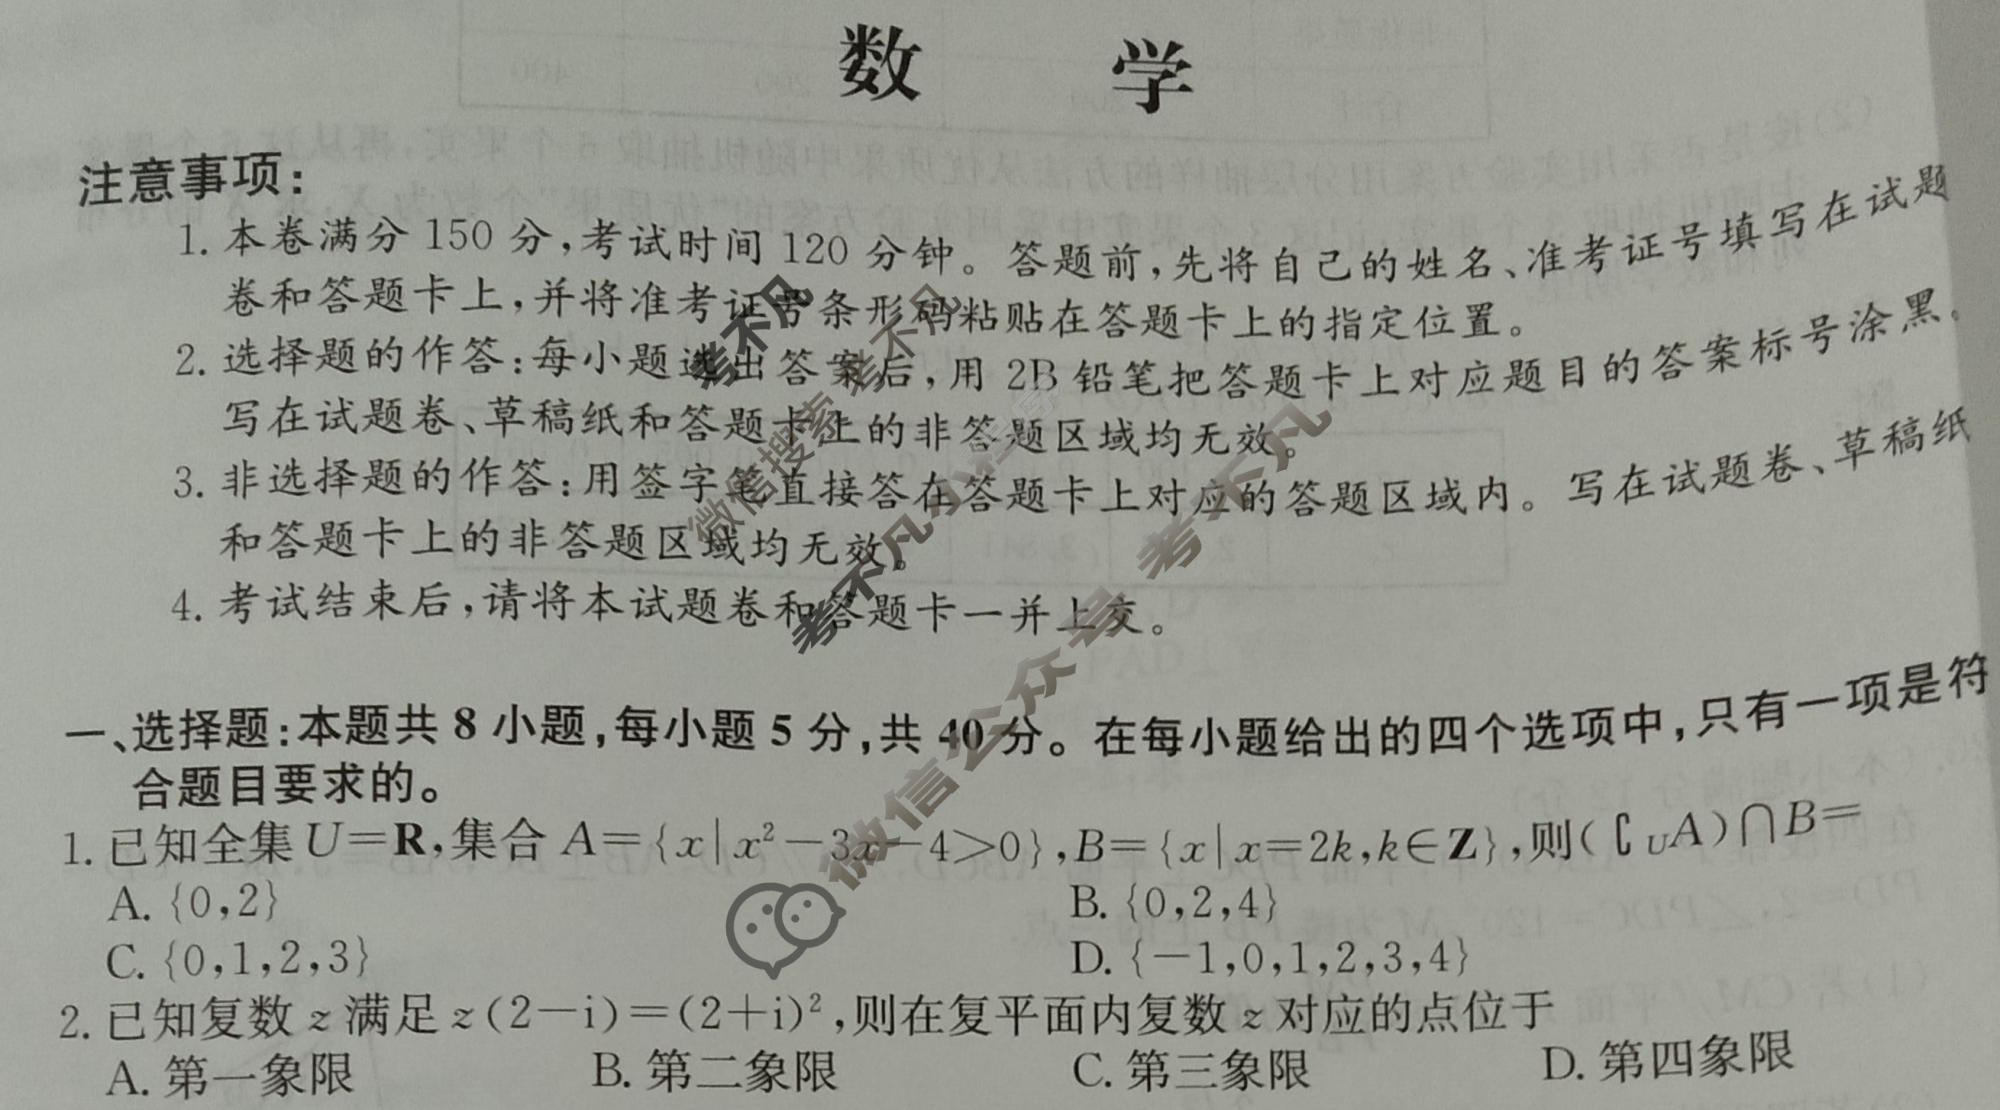 数 学
注意事项：
1. 本卷满分 150 分，考试时间 120 分钟。答题前，先将自己的姓名、准考证号填写在试题
卷和答题卡上，并将准考证号条形码粘贴在答题卡上的指定位置。
2. 选择题的作答：每小题选出答案后，用 2B 铅笔把答题卡上对应题目的答案标号涂黑。
写在试题卷、草稿纸和答题卡上的非答题区域均无效。
3. 非选择题的作答：用签字笔直接答在答题卡上对应的答题区域内。写在试题卷、草稿纸
和答题卡上的非答题区域均无效。
4. 考试结束后，请将本试题卷和答题卡一并上交。
一、选择题：本题共 8 小题，每小题 5 分，共 40 分。在每小题给出的四个选项中，只有一项是符
合题目要求的。
1. 已知全集 U=R，集合 A={x|x²-3x-4>0}，B={x|x=2k,k∈Z}，则(∁ᵤA)∩B=
A. {0,2} B. {0,2,4}
C. {0,1,2,3} D. {-1,0,1,2,3,4}
2. 已知复数 z 满足 z(2-i)=(2+i)²，则在复平面内复数 z 对应的点位于
A. 第一象限 B. 第二象限 C. 第三象限 D. 第四象限
考不凡
考不凡
微信搜索
考不凡小程序
微信公众号 考不凡